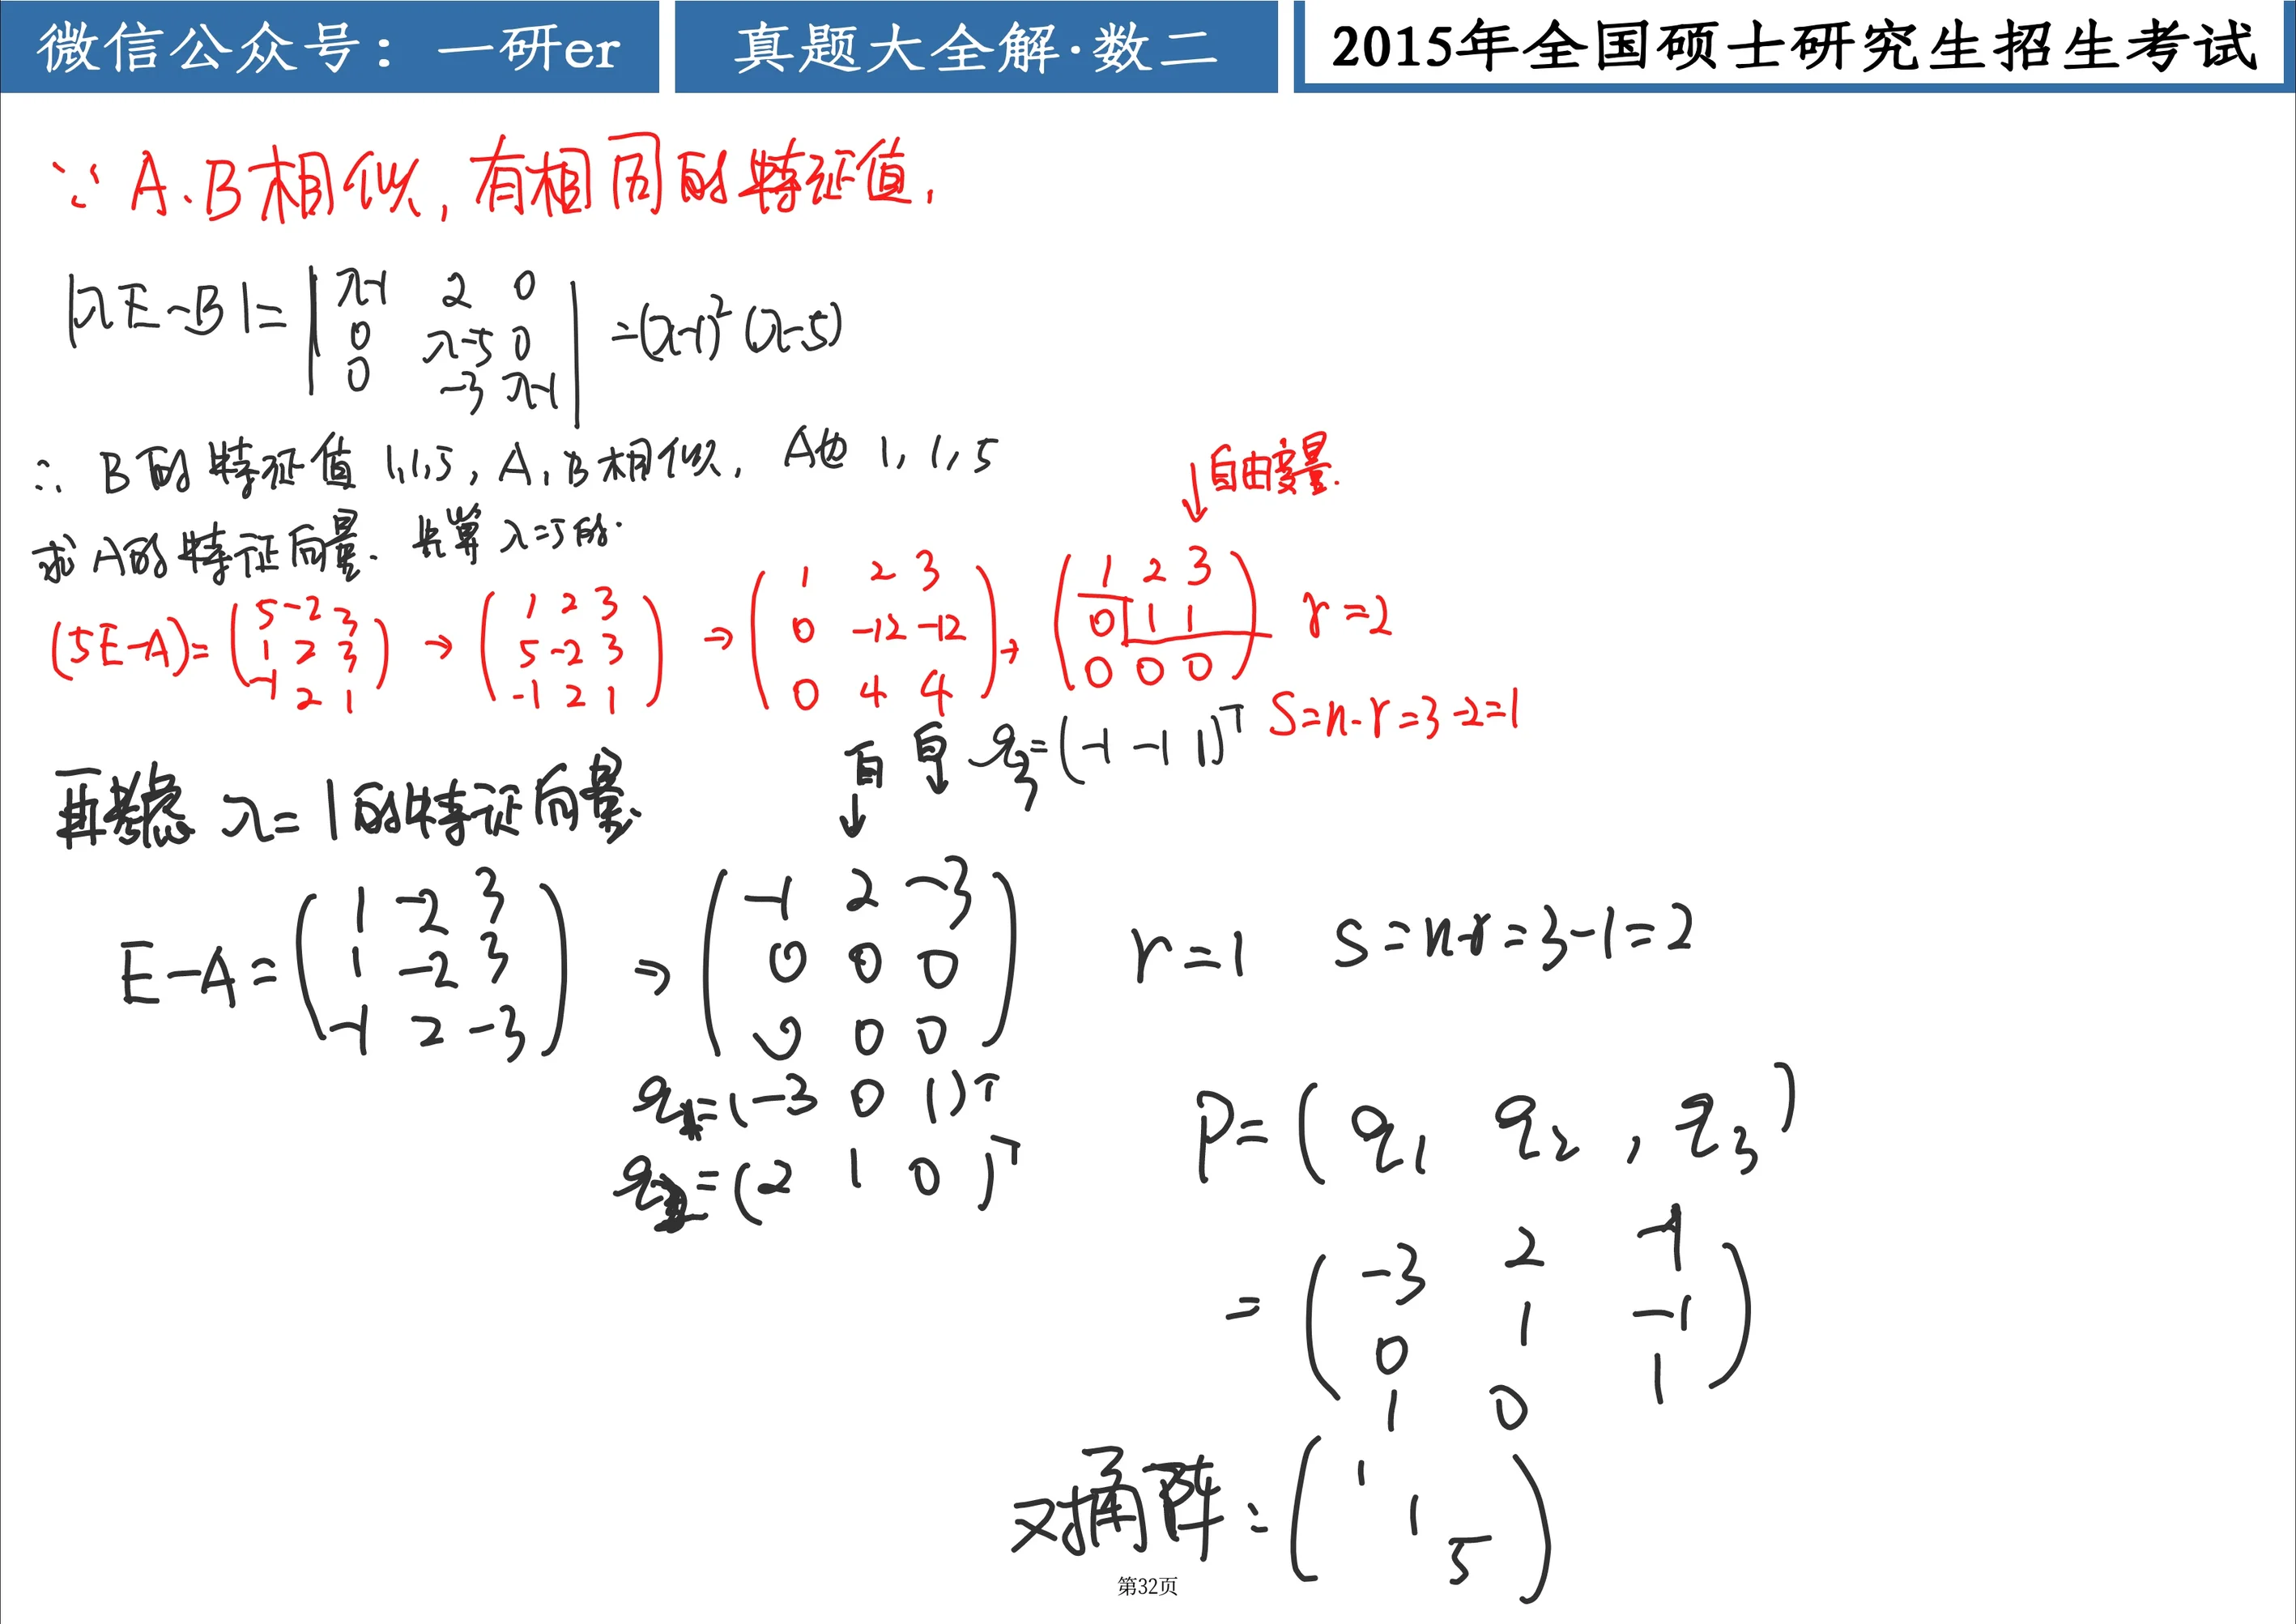 微信公众号：一研er 真题大全解·数二 2015年全国硕士研究生招生考试
∵ A、B相似，有相同的特征值，
|λE-B|= | λ-1 2 0
0 λ-5 0
0 -3 λ-1 | =(λ-1)²(λ-5)
∴ B的特征值 1,1,5，A，B相似，A也 1，1，5
↓自由变量.
求A的特征向量. 先算 λ=5的.
(5E-A)= ( 5 -2 3
1 2 3
-1 2 1 ) → ( 1 2 3
5 -2 3
-1 2 1 ) ⇒ ( 1 2 3
0 -12 -12
0 4 4 ) → ( 1 2 3
0 1 1
0 0 0 ) r=2
S=n-r=3-2=1
q₃=(-1 -1 1)ᵀ
再考虑 λ=1的特征向量.
自↓ 自↓
E-A= ( 1 -2 3
1 -2 3
-1 2 -3 ) ⇒ ( -1 2 -3
0 0 0
0 0 0 ) r=1 S=n-r=3-1=2
q₁=(-3 0 1)ᵀ
q₂=(2 1 0)ᵀ
P=(q₁ q₂，q₃)
= ( -3 2 -1
0 1 -1
1 0 1 )
对角阵：( 1
1
5 )
第32页